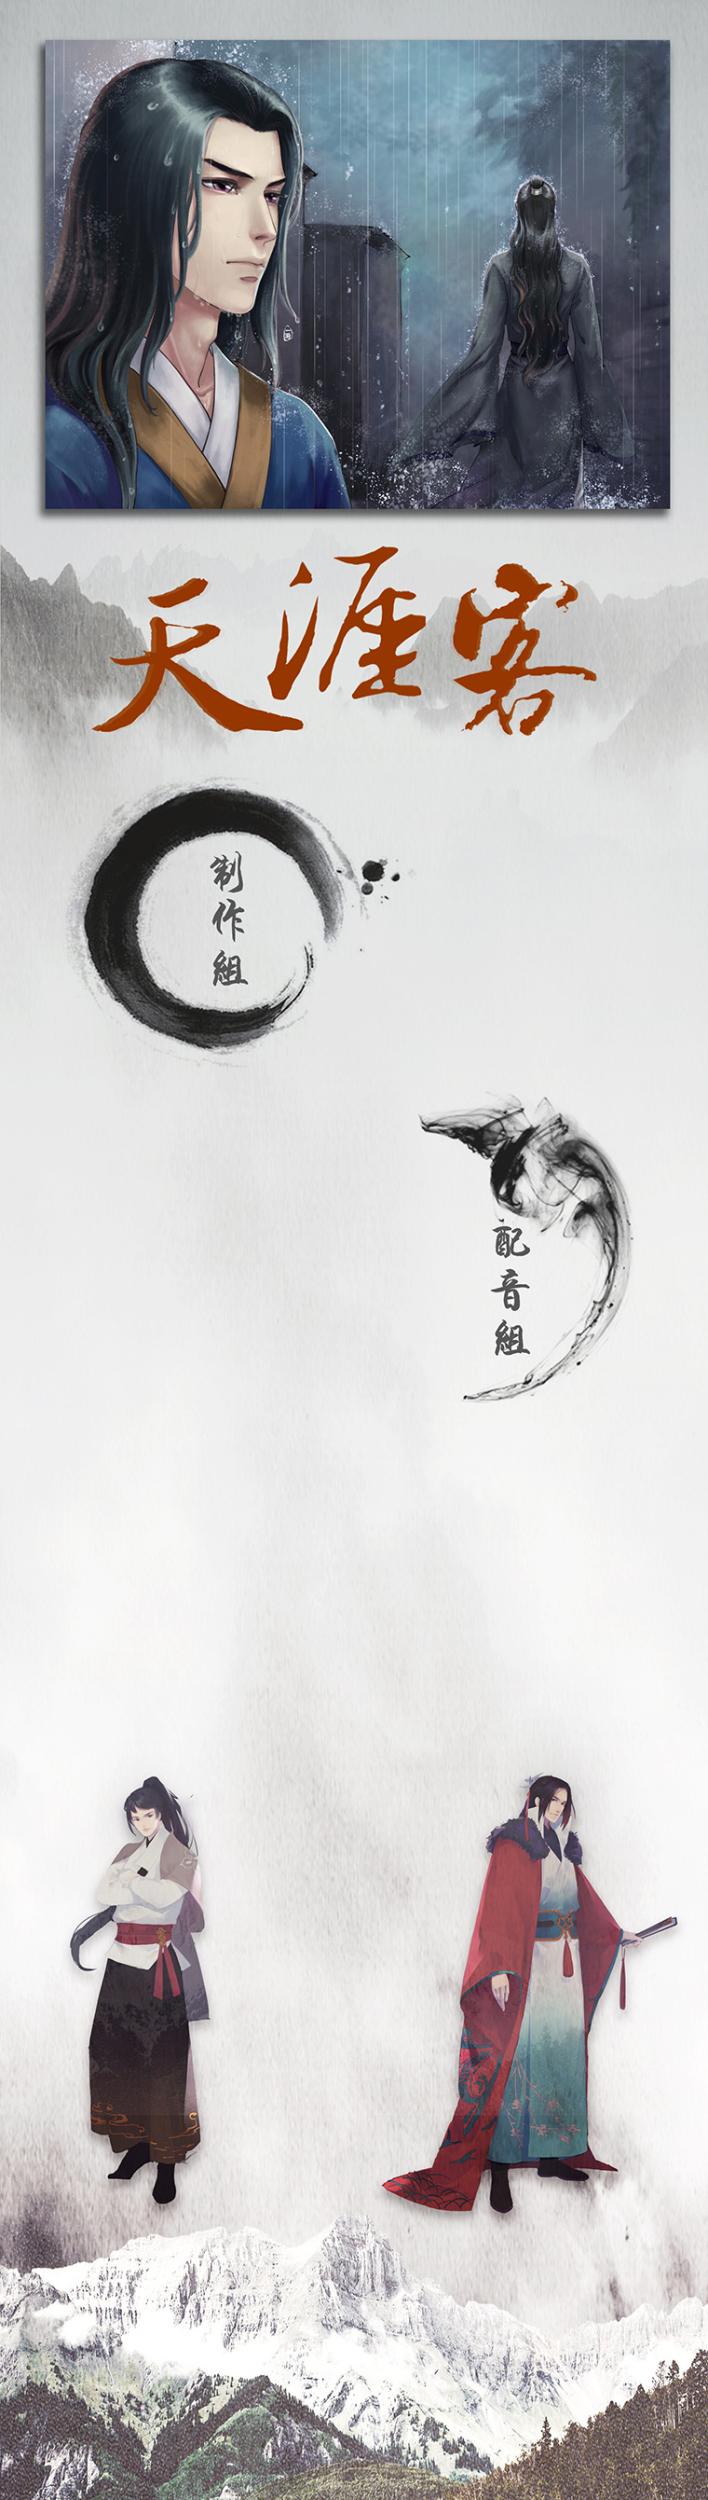 天涯客
制作組
配音組